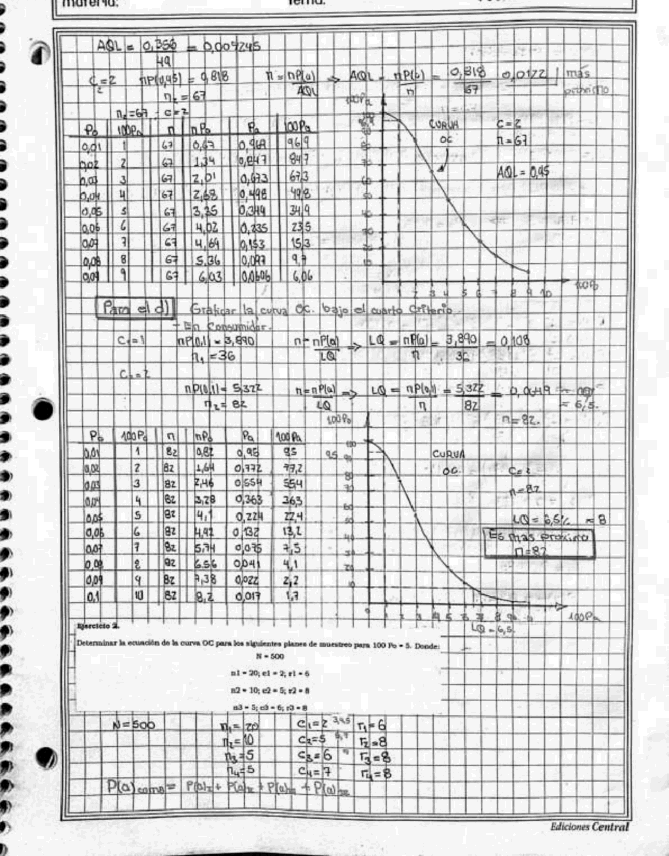 materia:
AQL = 0,356 / 49 = 0,007245
C₂=2 nP(0,95) = 0,818 n = nP(a) / AQL => AQL = nP(a) / n = 0,818 / 67 0,0122 más próximo
n₂ = 67
n₂ = 67 c = 2
Po 100Po n nPo Pa 100Pa
0,01 1 67 0,67 0,969 96,9
0,02 2 67 1,34 0,847 84,7
0,03 3 67 2,01 0,673 67,3
0,04 4 67 2,68 0,498 49,8
0,05 5 67 3,35 0,349 34,9
0,06 6 67 4,02 0,235 23,5
0,07 7 67 4,69 0,153 15,3
0,08 8 67 5,36 0,097 9,7
0,09 9 67 6,03 0,0606 6,06
100Pa
CURVA OC
C=2
n=67
AQL = 0,95
100Po
Para el d) Graficar la curva OC. bajo el cuarto Criterio
- En Consumidor.
C₁=1 nP(0,1) = 3,890 n = nP(a) / LQ => LQ = nP(a) / n = 3,890 / 36 = 0,108
n₁ = 36
C₂=2
nP(0,1) = 5,322 n = nP(a) / LQ => LQ = nP(0,1) / n = 5,322 / 82 = 0,0649
= 6,5.
n₂ = 82
n=82.
Po 100Po n nPo Pa 100Pa
0,01 1 82 0,82 0,95 95
0,02 2 82 1,64 0,772 77,2
0,03 3 82 2,46 0,554 55,4
0,04 4 82 3,28 0,363 36,3
0,05 5 82 4,1 0,224 22,4
0,06 6 82 4,92 0,132 13,2
0,07 7 82 5,74 0,075 7,5
0,08 8 82 6,56 0,041 4,1
0,09 9 82 7,38 0,022 2,2
0,1 10 82 8,2 0,017 1,7
CURVA OC.
C=2
n=82
LQ = 6,5% ≈ 8
Es mas proximo
n=82
100Po
LQ = 6,5.
Ejercicio 2.
Determinar la ecuación de la curva OC para los siguientes planes de muestreo para 100 Po = 5. Donde:
N = 500
n1 = 20; c1 = 2; r1 = 6
n2 = 10; c2 = 5; r2 = 8
n3 = 5; c3 = 6; r3 = 8
N=500 n₁= 20 C₁=2 3,4,5 r₁=6
n₂=10 C₂=5 6,7 r₂=8
n₃=5 C₃=6 r₃=8
n₄=5 C₄=7 r₄=8
P(a) comb = P(a)I + P(a)II + P(a)III + P(a)IV
Ediciones Central